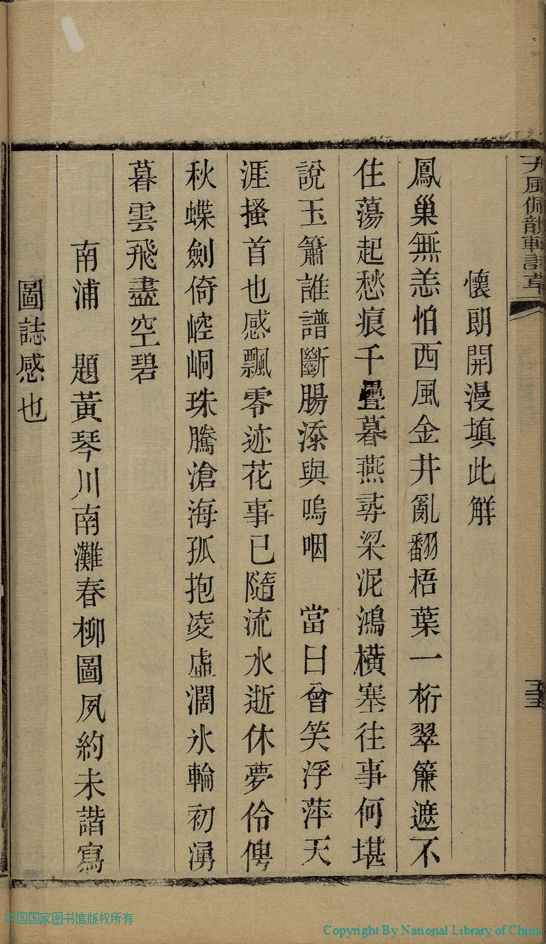 天風佩韻軒詩草
懷朗開漫填此解
鳳巢無恙怕西風金井亂翻梧葉一桁翠簾遮不
住蕩起愁痕千疊暮燕尋梁泥鴻橫塞往事何堪
說玉簫誰譜斷腸添與嗚咽　當日曾笑浮萍天
涯搔首也感飄零迹花事已隨流水逝休夢伶俜
秋蝶劍倚崆峒珠騰滄海孤抱凌虛濶氷輪初湧
暮雲飛盡空碧
南浦　題黃琴川南灘春柳圖夙約未諧寫
圖誌感也
中国国家图书馆版权所有
Copyright By National Library of China